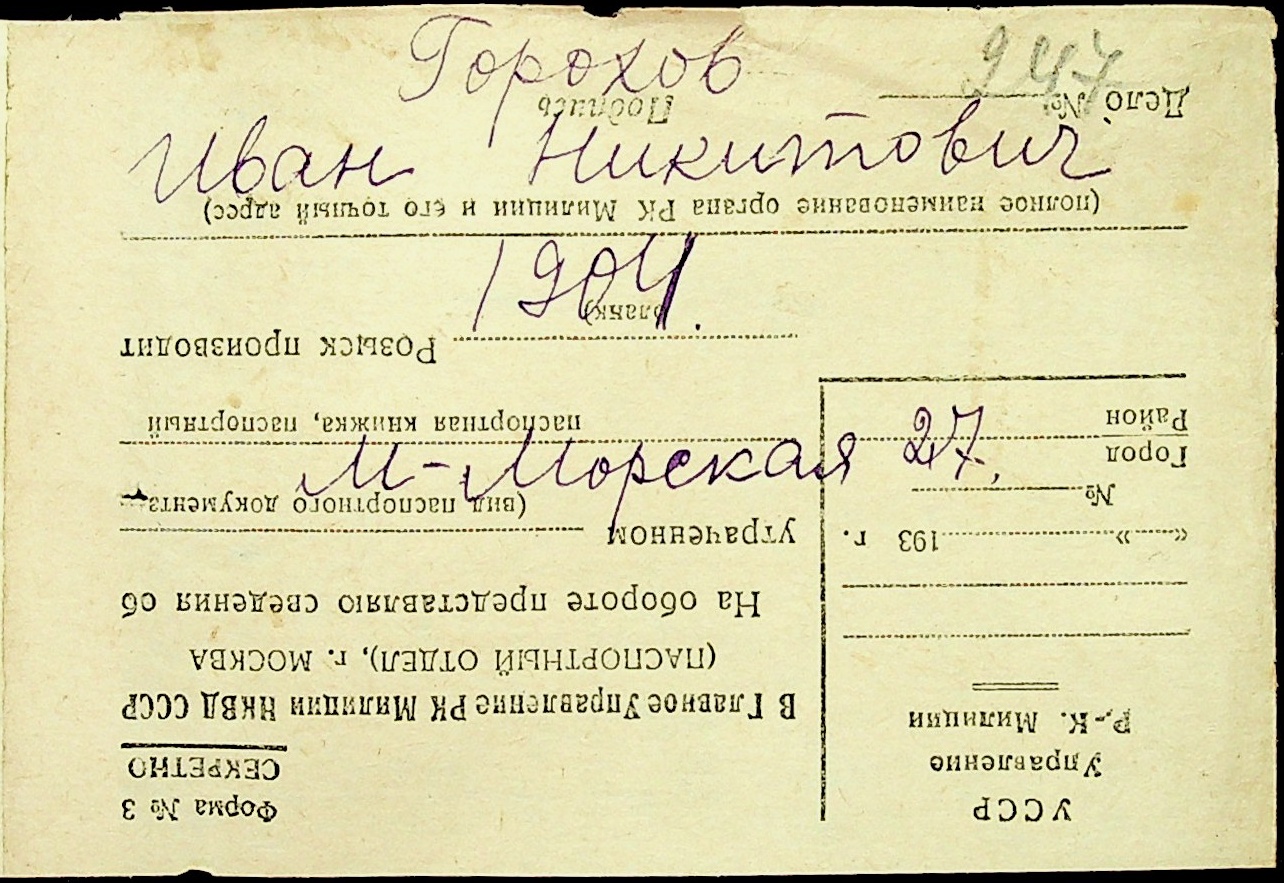 947
Горохов
Иван Никитович
1904.
М-Морская 27.
УССР
Управление
Р.-К. Милиции
« » 193 г.
№
Город
Район
Форма № 3
СЕКРЕТНО
В Главное Управление РК Милиции НКВД СССР
(ПАСПОРТНЫЙ ОТДЕЛ), г. МОСКВА
На обороте представляю сведения об
утраченном
(вид паспортного документа
паспортная книжка, паспортный
бланк)
Розыск производит
(полное наименование органа РК Милиции и его точный адрес)
Дело №
Подпись